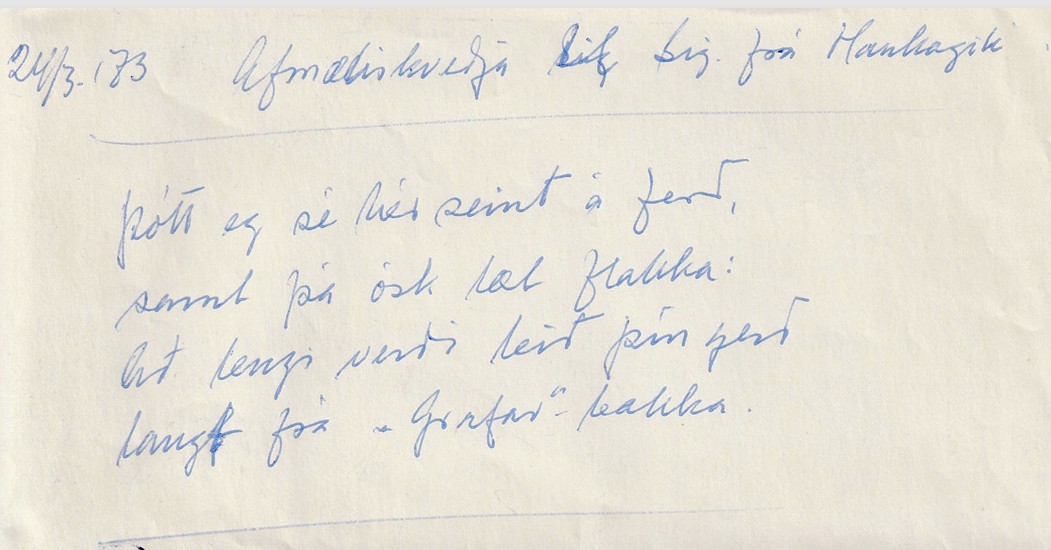 24/3. '73 Afmæliskveðja til Sig. frá Haukagili
Þótt eg sé hér seint á ferð,
samt þá ósk læt flakka:
Að lengi verði leið þín gerð
langt frá „Grafar“-bakka.